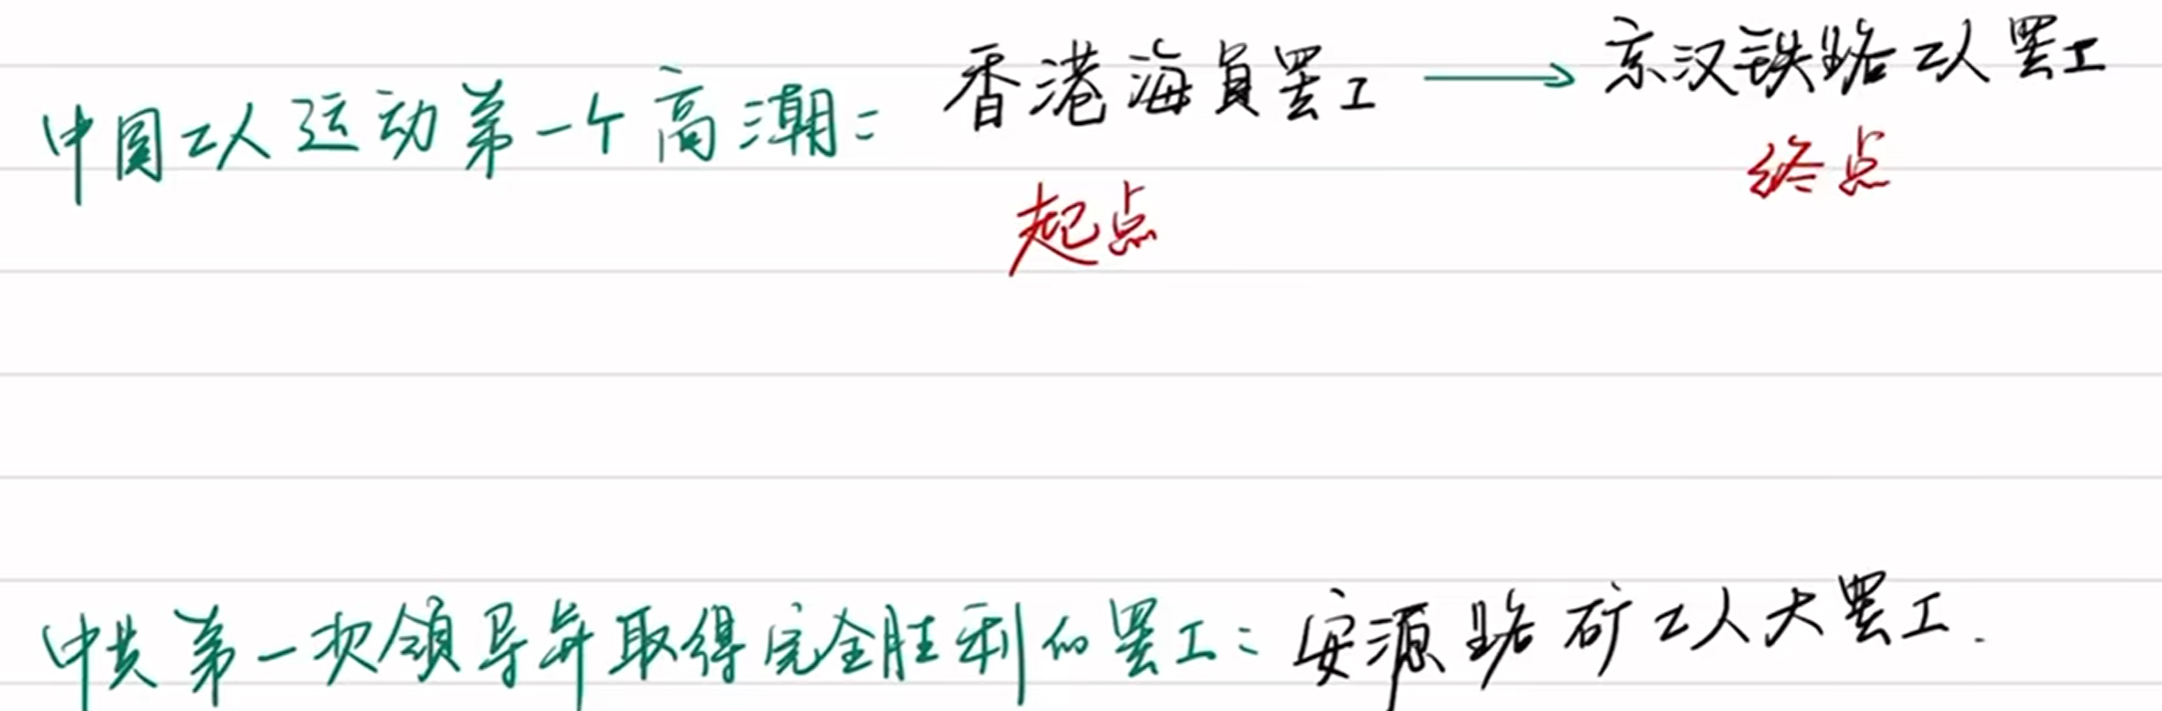 中国工人运动第一个高潮：香港海員罢工 → 京汉铁路工人罢工
起点 终点
中共第一次领导并取得完全胜利的罢工：安源路矿工人大罢工.